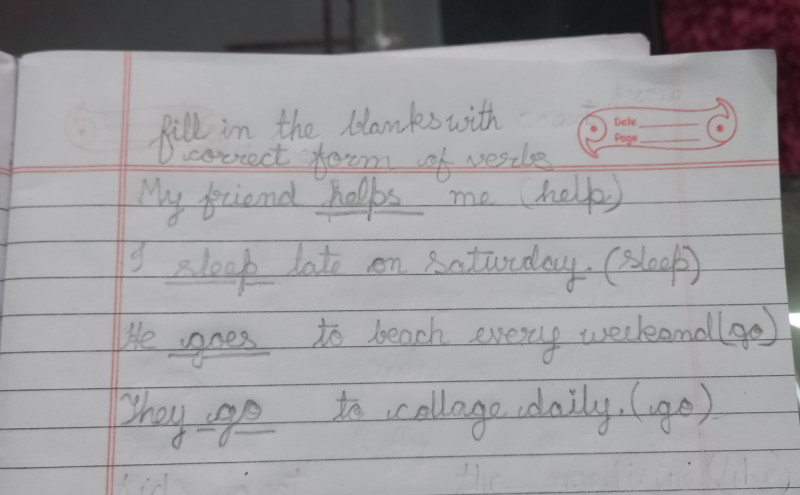 fill in the blanks with
correct form of verbs
Date
Page
My friend helps me (help)
I sleep late on saturday. (sleep)
He goes to beach every weekend (go)
They go to collage daily. (go)
the